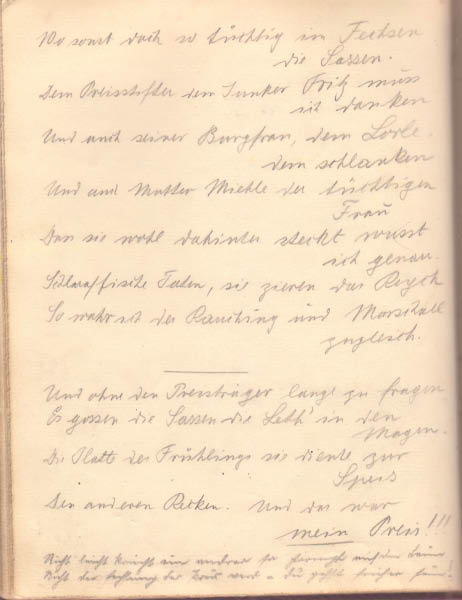 Wo sonst doch so tüchtig im Fechsen
die Sassen.
Dem Preisstifter dem Junker Fritz muss
ich danken
Und auch seiner Burgfrau, dem Lorle
dem schlanken
Und auch Mutter Miehle der tüchtigen
Frau
Dass sie wohl dahinter steckt wusst
ich genau.
Schlaraffische Taten, sie zieren das Reych
So wahr ich der Rauching und Marschall
zugleich.
Und ohne den Preisträger lange zu fragen
Es gossen die Sassen die Leth' in den
Magen.
Die Platte des Frühlings sie diente zur
Speis
Den anderen Recken. Und das war
mein Preis!!!
Nicht leicht ein anderer so
Nicht der Hoffnung der